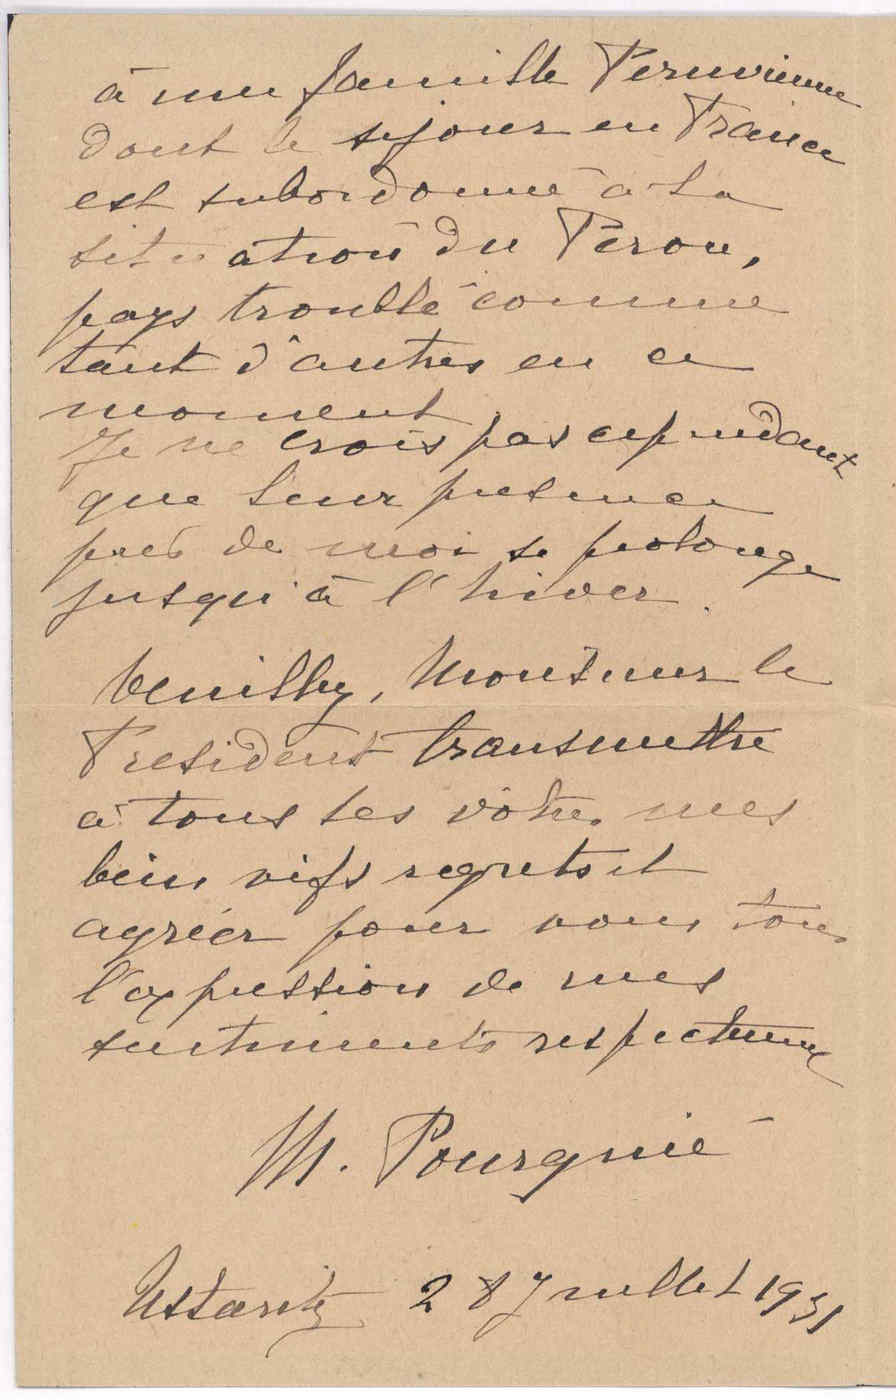 à une famille Peruvienne
dont le séjour en France
est subordonné à la
situation du Pérou,
pays troublé comme
tant d'autres en ce
moment
Je ne crois pas cependant
que leur présence
près de moi se prolonge
jusqu'à l'hiver.
Veuillez, Monsieur le
President transmettre
à tous les vôtres mes
bien vifs regrets et
agréer pour vous tous
l'expression de mes
sentiments respectueux
M. Pourquié
Ustaritz 28 Juillet 1931